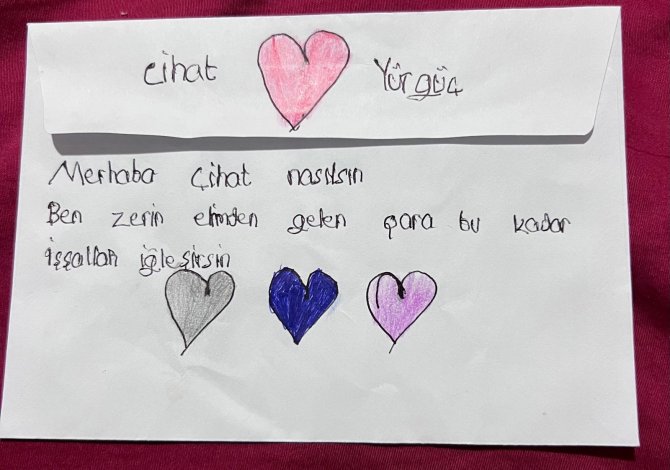 Cihat Yürgüç
Merhaba Cihat nasılsın
Ben zerin elimden gelen para bu kadar
İşşallah iğleşirsin